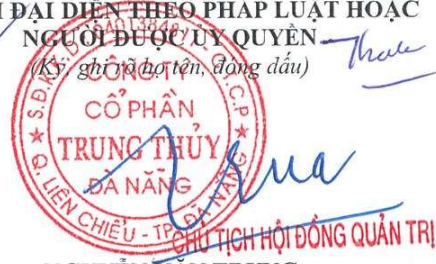 ĐẠI DIỆN THEO PHÁP LUẬT HOẶC
NGƯỜI ĐƯỢC ỦY QUYỀN
(Ký, ghi rõ họ tên, đóng dấu)
CÔNG TY
CỔ PHẦN
TRUNG THỦY
ĐÀ NẴNG
Q. LIÊN CHIỂU - TP. ĐÀ NẴNG
CHỦ TỊCH HỘI ĐỒNG QUẢN TRỊ